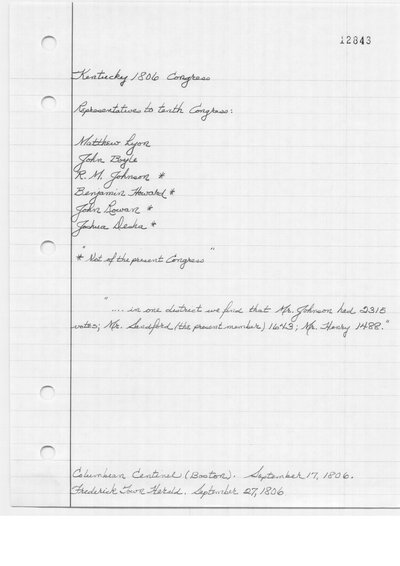 12843
Kentucky 1806 Congress
Representatives to tenth Congress:
Matthew Lyon
John Boyle
R. M. Johnson *
Benjamin Howard *
John Rowan *
Joshua Desha *
"* Not of the present Congress"
".... in one district we find that Mr. Johnson had 2315
votes; Mr. Sandford (the present member) 1643; Mr. Henry 1488."
Columbian Centinel (Boston). September 17, 1806.
Frederick Town Herald. September 27, 1806